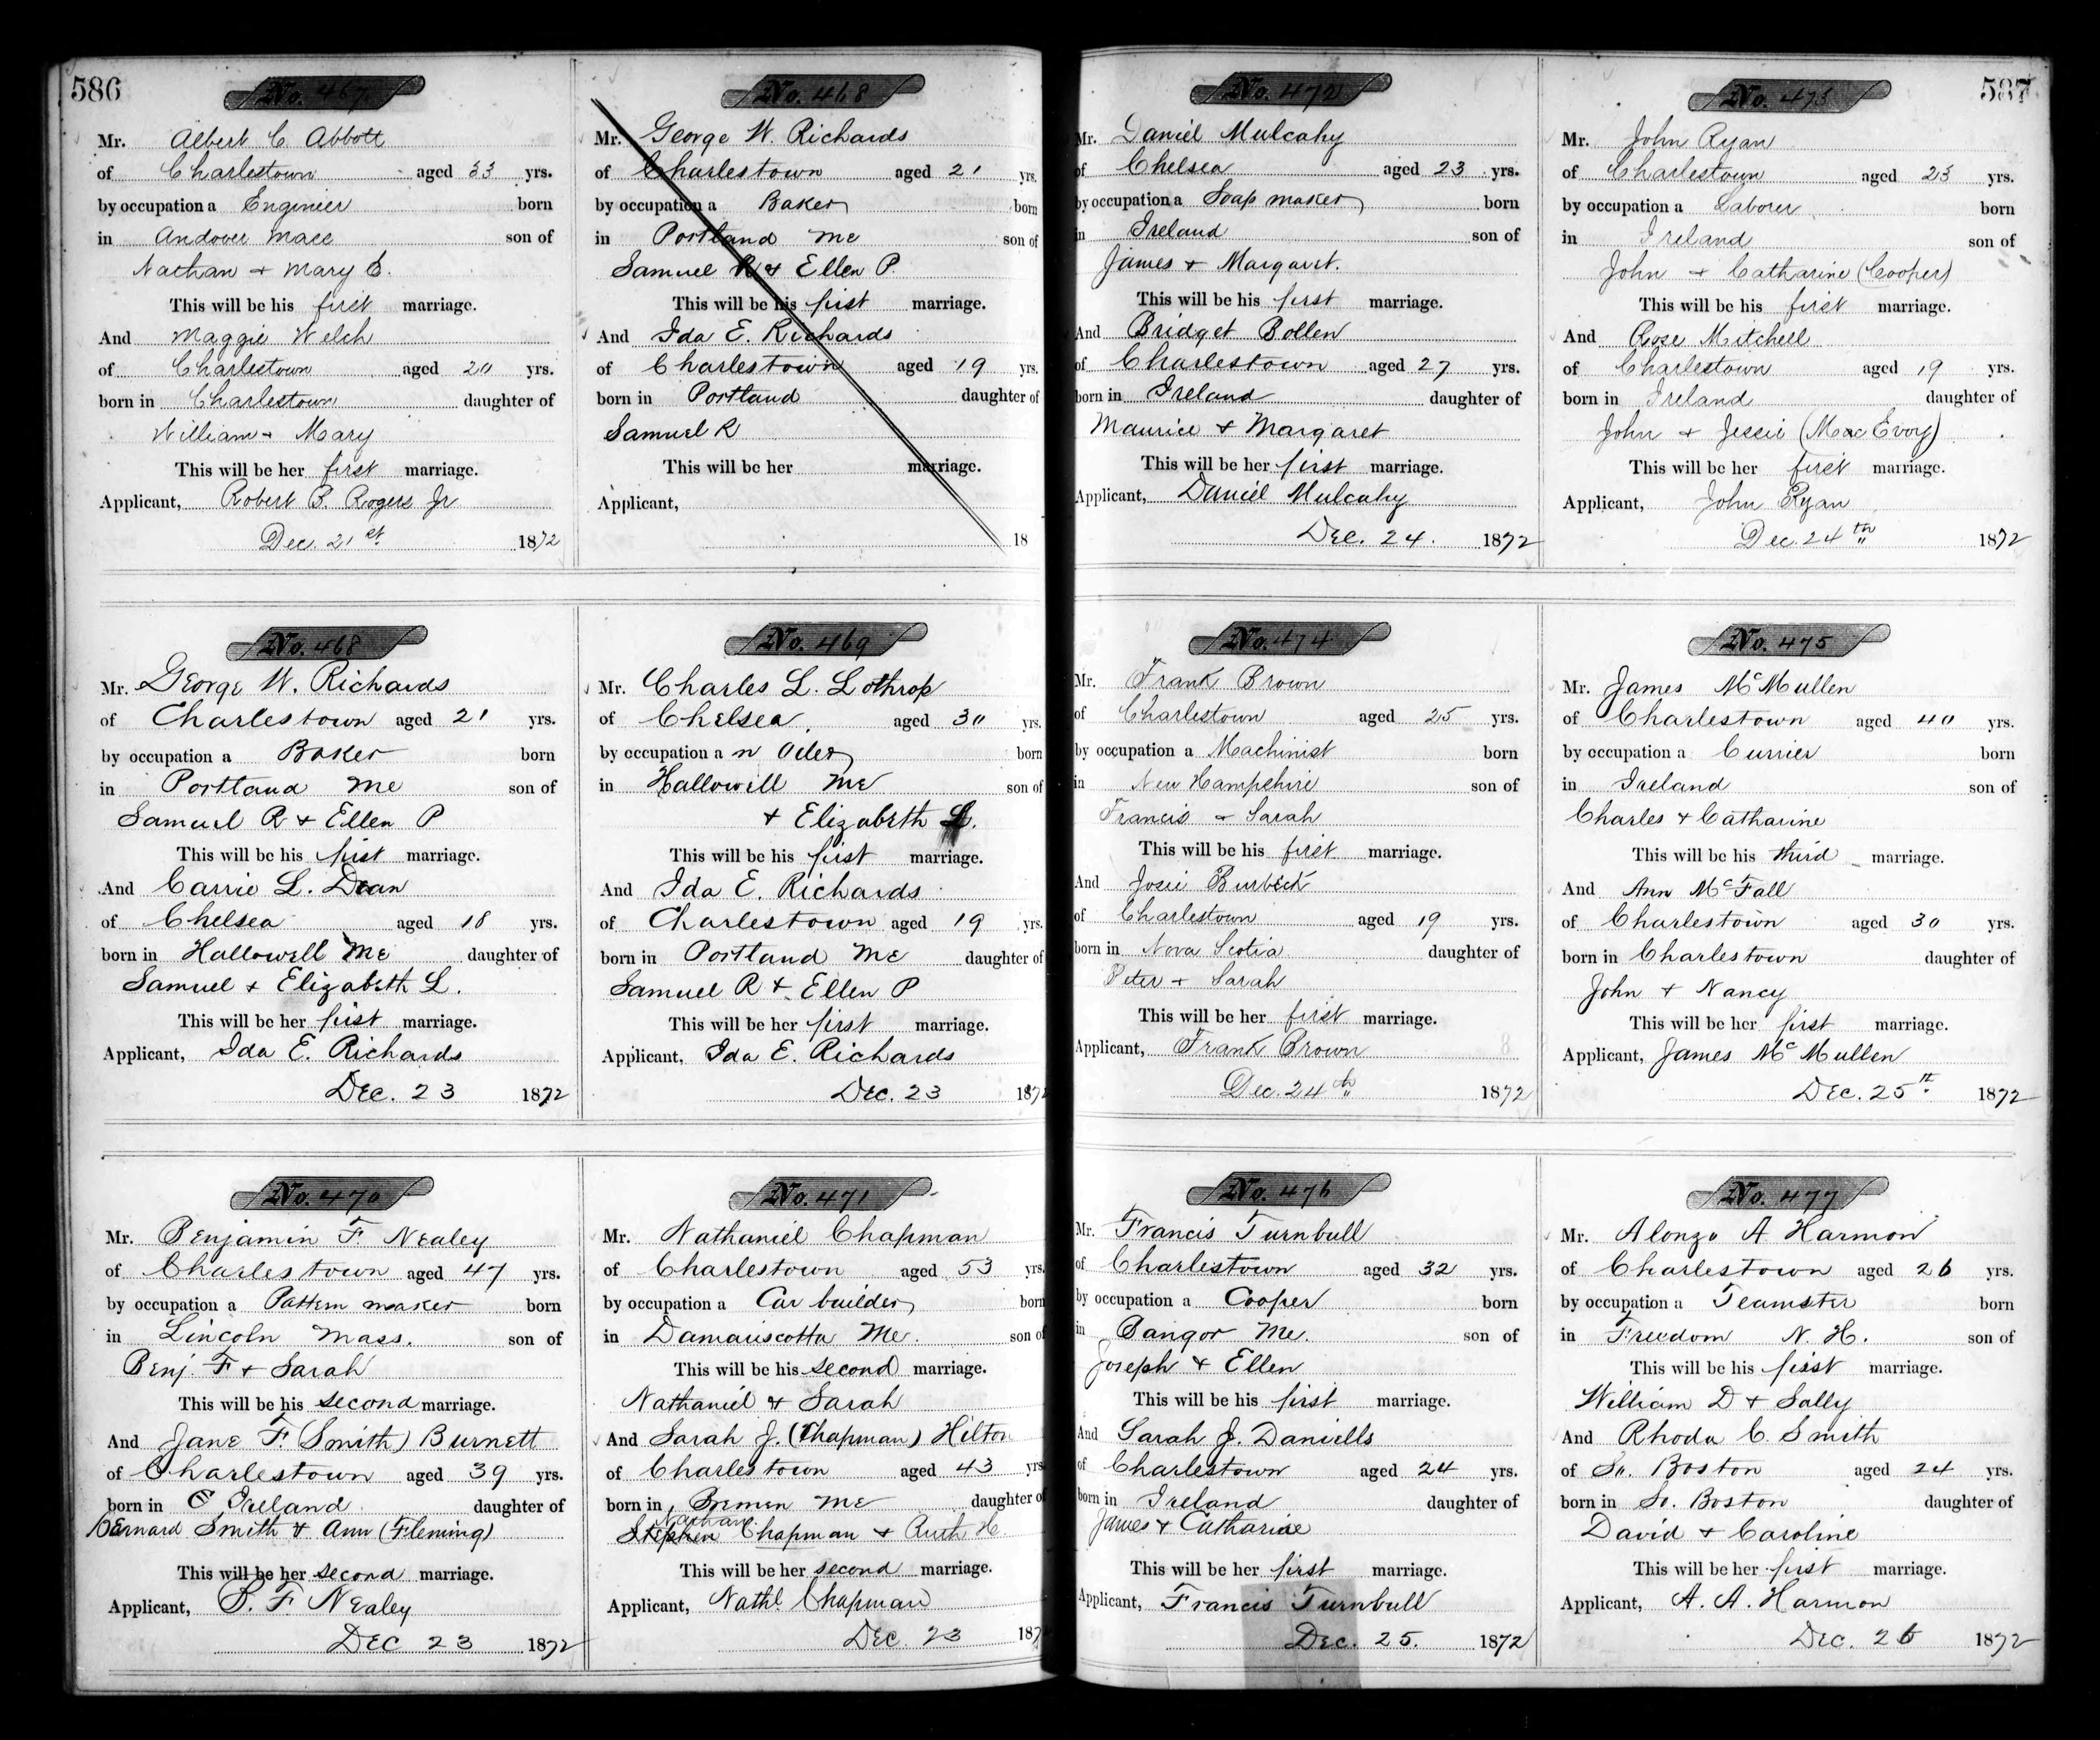 586
No. 467
Mr. Albert C. Abbott
of Charlestown aged 33 yrs.
by occupation a Engineer born
in Andover Mass son of
Nathan + Mary E.
This will be his first marriage.
And Maggie Welch
of Charlestown aged 20 yrs.
born in Charlestown daughter of
William + Mary
This will be her first marriage.
Applicant, Robert B. Rogers Jr
Dec. 21st 1872
No. 468
Mr. George W. Richards
of Charlestown aged 21 yrs.
by occupation a Baker born
in Portland Me son of
Samuel R + Ellen P.
This will be his first marriage.
And Ida E. Richards
of Charlestown aged 19 yrs.
born in Portland daughter of
Samuel R
This will be her marriage.
Applicant,
18
No. 468
Mr. George W. Richards
of Charlestown aged 21 yrs.
by occupation a Baker born
in Portland Me son of
Samuel R + Ellen P
This will be his first marriage.
And Carrie L. Dean
of Chelsea aged 18 yrs.
born in Hallowell Me daughter of
Samuel + Elizabeth L.
This will be her first marriage.
Applicant, Ida E. Richards
Dec. 23 1872
No. 469
Mr. Charles L. Lothrop
of Chelsea aged 30 yrs.
by occupation a born
in Hallowell Me son of
+ Elizabeth L.
This will be his first marriage.
And Ida E. Richards
of Charlestown aged 19 yrs.
born in Portland Me daughter of
Samuel R + Ellen P
This will be her first marriage.
Applicant, Ida E. Richards
Dec. 23 187
No. 470
Mr. Benjamin F. Nealey
of Charlestown aged 47 yrs.
by occupation a Pattern maker born
in Lincoln Mass. son of
Benj. F + Sarah
This will be his second marriage.
And Jane F. (Smith) Burnett
of Charlestown aged 39 yrs.
born in Ireland daughter of
Bernard Smith + Ann (Fleming)
This will be her second marriage.
Applicant, B. F. Nealey
Dec 23 1872
No. 471
Mr. Nathaniel Chapman
of Charlestown aged 53 yrs.
by occupation a Car builder born
in Damariscotta Me. son of
This will be his second marriage.
Nathaniel + Sarah
And Sarah J. (Chapman) Hilton
of Charlestown aged 43 yrs
born in Bremen Me daughter of
Nathan
Stephen Chapman + Ruth H
This will be her second marriage.
Applicant, Nathl. Chapman
Dec. 23 187
587
No. 472
Mr. Daniel Mulcahy
of Chelsea aged 23 yrs.
by occupation a Soap maker born
in Ireland son of
James + Margaret.
This will be his first marriage.
And Bridget Bollen
of Charlestown aged 27 yrs.
born in Ireland daughter of
Maurice + Margaret
This will be her first marriage.
Applicant, Daniel Mulcahy
Dec. 24. 1872
No. 473
Mr. John Ryan
of Charlestown aged 23 yrs.
by occupation a Laborer born
in Ireland son of
John + Catharine (Cooper)
This will be his first marriage.
And Rose Mitchell
of Charlestown aged 19 yrs.
born in Ireland daughter of
John + Jessie (MacEvoy)
This will be her first marriage.
Applicant, John Ryan
Dec. 24th 1872
No. 474
Mr. Frank Brown
of Charlestown aged 25 yrs.
by occupation a Machinist born
in New Hampshire son of
Francis + Sarah
This will be his first marriage.
And Josie Burbeck
of Charlestown aged 19 yrs.
born in Nova Scotia daughter of
Peter + Sarah
This will be her first marriage.
Applicant, Frank Brown
Dec. 24th 1872
No. 475
Mr. James McMullen
of Charlestown aged 40 yrs.
by occupation a Currier born
in Ireland son of
Charles + Catharine
This will be his third marriage.
And Ann McFall
of Charlestown aged 30 yrs.
born in Charlestown daughter of
John + Nancy
This will be her first marriage.
Applicant, James McMullen
Dec. 25th 1872
No. 476
Mr. Francis Turnbull
of Charlestown aged 32 yrs.
by occupation a Cooper born
in Bangor Me. son of
Joseph + Ellen
This will be his first marriage.
And Sarah J. Daniells
of Charlestown aged 24 yrs.
born in Ireland daughter of
James + Catharine
This will be her first marriage.
Applicant, Francis Turnbull
Dec. 25. 1872
No. 477
Mr. Alonzo A. Harmon
of Charlestown aged 26 yrs.
by occupation a Teamster born
in Freedom N. H. son of
This will be his first marriage.
William D + Sally
And Rhoda C. Smith
of So. Boston aged 24 yrs.
born in So. Boston daughter of
David + Caroline
This will be her first marriage.
Applicant, A. A. Harmon
Dec. 26 1872